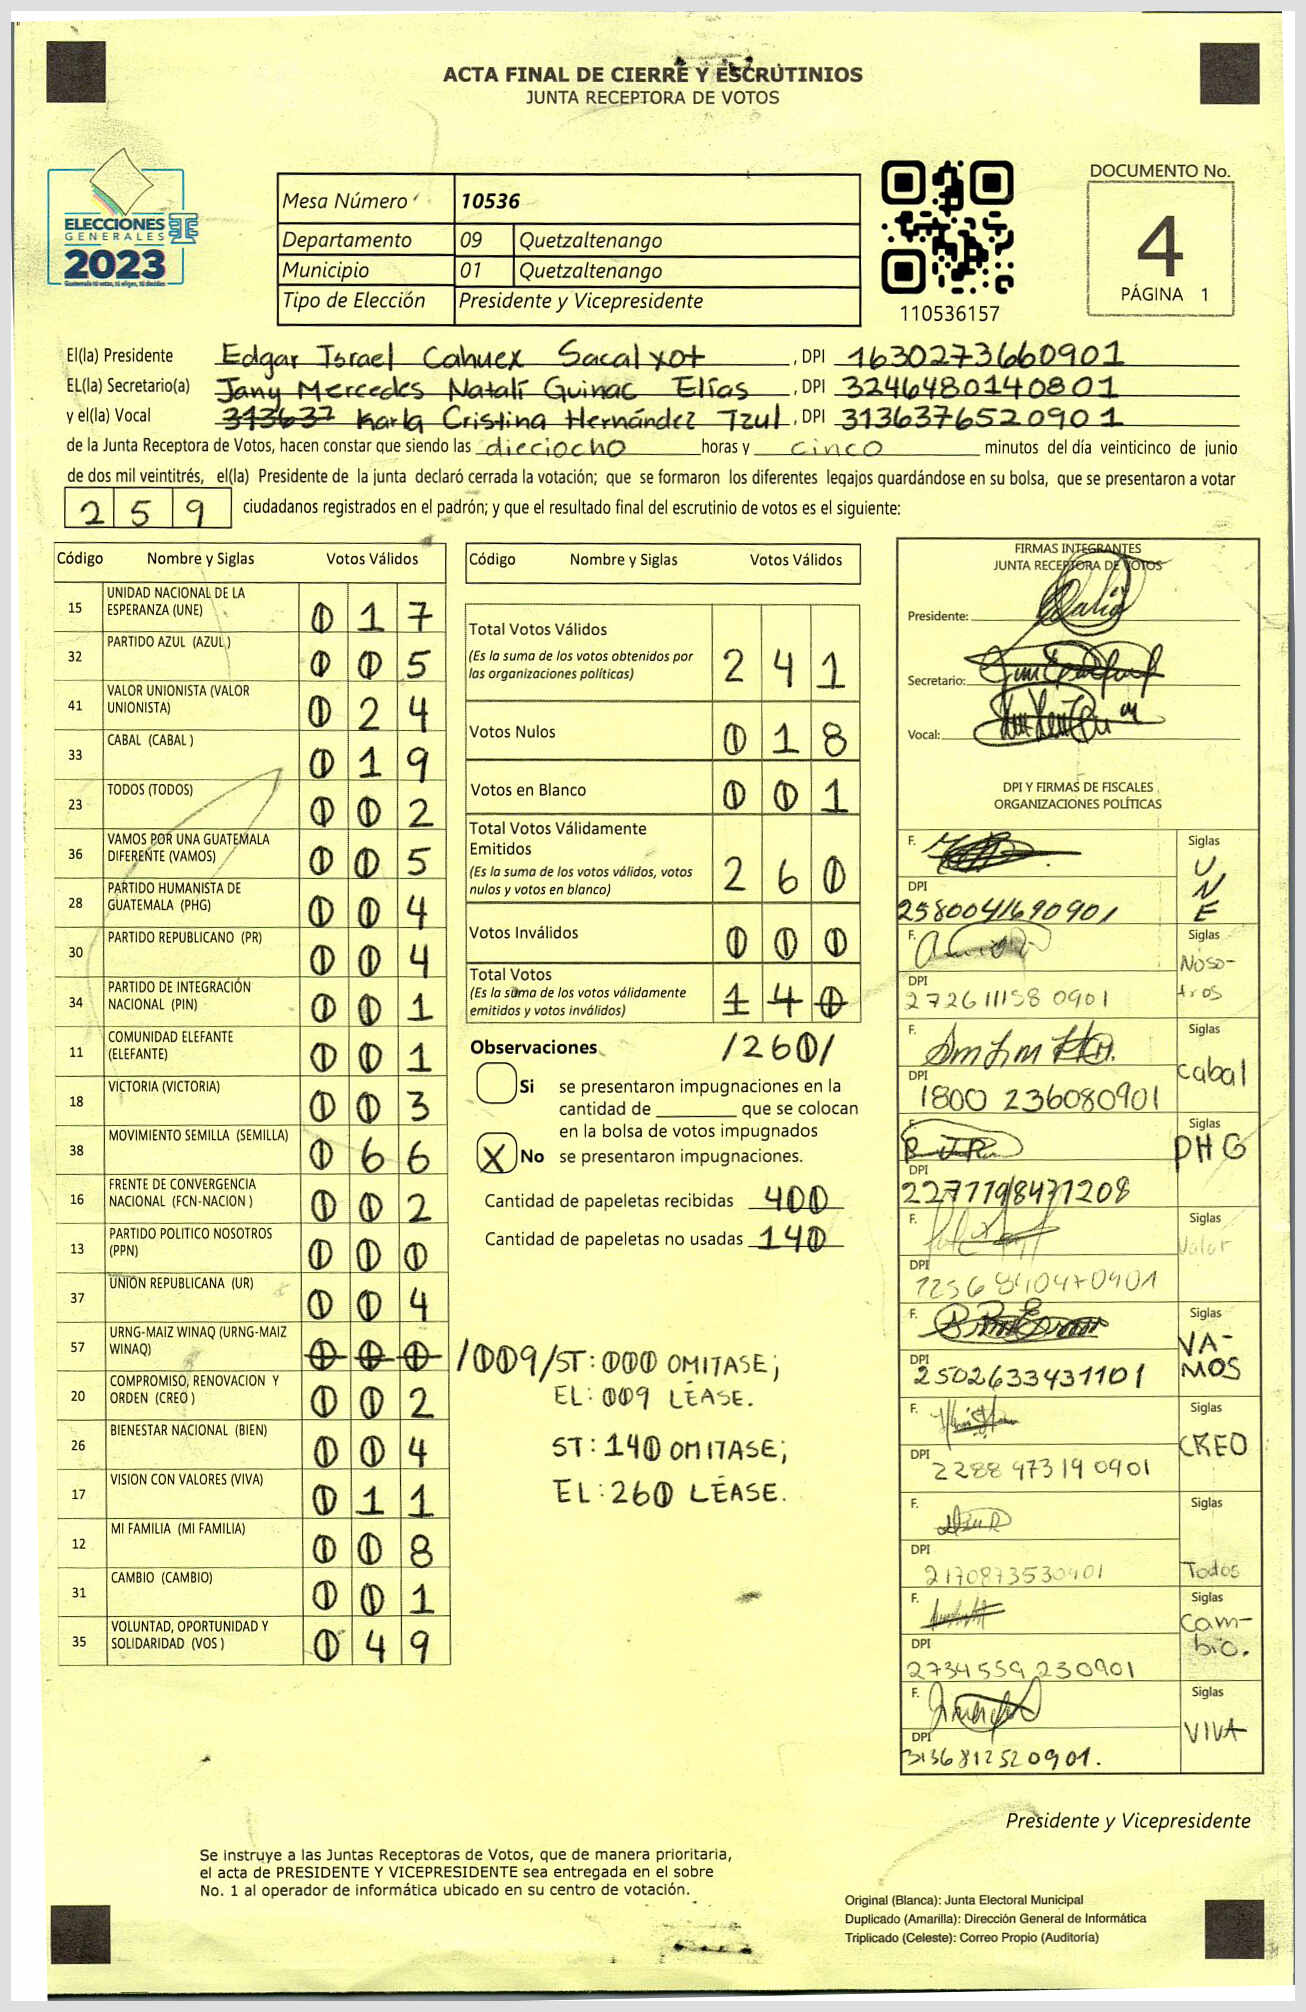 ACTA FINAL DE CIERRE Y ESCRUTINIOS
JUNTA RECEPTORA DE VOTOS
ELECCIONES
GENERALES
2023
Mesa Número 10536
Departamento 09 Quetzaltenango
Municipio 01 Quetzaltenango
Tipo de Elección Presidente y Vicepresidente
110536157
DOCUMENTO No.
4
PÁGINA 1
El(la) Presidente Edgar Israel Cahuex Sacalxot, DPI 1630273660901
EL(la) Secretario(a) Jany Mercedes Natalí Guinac Elías, DPI 3246480140801
y el(la) Vocal 313637 Karla Cristina Hernández Tzul, DPI 3136376520901
de la Junta Receptora de Votos, hacen constar que siendo las dieciocho horas y cinco minutos del día veinticinco de junio
de dos mil veintitrés, el(la) Presidente de la junta declaró cerrada la votación; que se formaron los diferentes legajos guardándose en su bolsa, que se presentaron a votar
259 ciudadanos registrados en el padrón; y que el resultado final del escrutinio de votos es el siguiente:
Código Nombre y Siglas Votos Válidos
15 UNIDAD NACIONAL DE LA ESPERANZA (UNE) 017
32 PARTIDO AZUL (AZUL) 005
41 VALOR UNIONISTA (VALOR UNIONISTA) 024
33 CABAL (CABAL) 019
23 TODOS (TODOS) 002
36 VAMOS POR UNA GUATEMALA DIFERENTE (VAMOS) 005
28 PARTIDO HUMANISTA DE GUATEMALA (PHG) 004
30 PARTIDO REPUBLICANO (PR) 004
34 PARTIDO DE INTEGRACIÓN NACIONAL (PIN) 001
11 COMUNIDAD ELEFANTE (ELEFANTE) 001
18 VICTORIA (VICTORIA) 003
38 MOVIMIENTO SEMILLA (SEMILLA) 066
16 FRENTE DE CONVERGENCIA NACIONAL (FCN-NACION) 002
13 PARTIDO POLITICO NOSOTROS (PPN) 000
37 UNION REPUBLICANA (UR) 004
57 URNG-MAIZ WINAQ (URNG-MAIZ WINAQ) 000 /009/
20 COMPROMISO, RENOVACION Y ORDEN (CREO) 002
26 BIENESTAR NACIONAL (BIEN) 004
17 VISION CON VALORES (VIVA) 011
12 MI FAMILIA (MI FAMILIA) 008
31 CAMBIO (CAMBIO) 001
35 VOLUNTAD, OPORTUNIDAD Y SOLIDARIDAD (VOS) 049
Código Nombre y Siglas Votos Válidos
Total Votos Válidos 241
(Es la suma de los votos obtenidos por
las organizaciones políticas)
Votos Nulos 018
Votos en Blanco 001
Total Votos Válidamente
Emitidos 260
(Es la suma de los votos válidos, votos
nulos y votos en blanco)
Votos Inválidos 000
Total Votos 140
(Es la suma de los votos válidamente
emitidos y votos inválidos)
Observaciones /260/
Si se presentaron impugnaciones en la
cantidad de ______ que se colocan
en la bolsa de votos impugnados
X No se presentaron impugnaciones.
Cantidad de papeletas recibidas 400
Cantidad de papeletas no usadas 140
ST: 000 OMITASE;
EL: 009 LÉASE.
ST: 140 OMITASE;
EL: 260 LÉASE.
FIRMAS INTEGRANTES
JUNTA RECEPTORA DE VOTOS
Presidente:
Secretario:
Vocal:
DPI Y FIRMAS DE FISCALES
ORGANIZACIONES POLÍTICAS
F. Siglas UNE
DPI 2580041690901
F. Siglas Nosotros
DPI 2726111580901
F. Siglas Cabal
DPI 1800 236080901
F. Siglas PHG
DPI
F. Siglas Valor
DPI
F. Siglas VAMOS
DPI 2502633431101
F. Siglas CREO
DPI 2288 97319 0901
F. Siglas Todos
DPI 2170873530401
F. Siglas Cambio.
DPI 2734559 230901
F. Siglas VIVA
DPI 3136812520901.
Presidente y Vicepresidente
Se instruye a las Juntas Receptoras de Votos, que de manera prioritaria,
el acta de PRESIDENTE Y VICEPRESIDENTE sea entregada en el sobre
No. 1 al operador de informática ubicado en su centro de votación.
Original (Blanca): Junta Electoral Municipal
Duplicado (Amarilla): Dirección General de Informática
Triplicado (Celeste): Correo Propio (Auditoría)